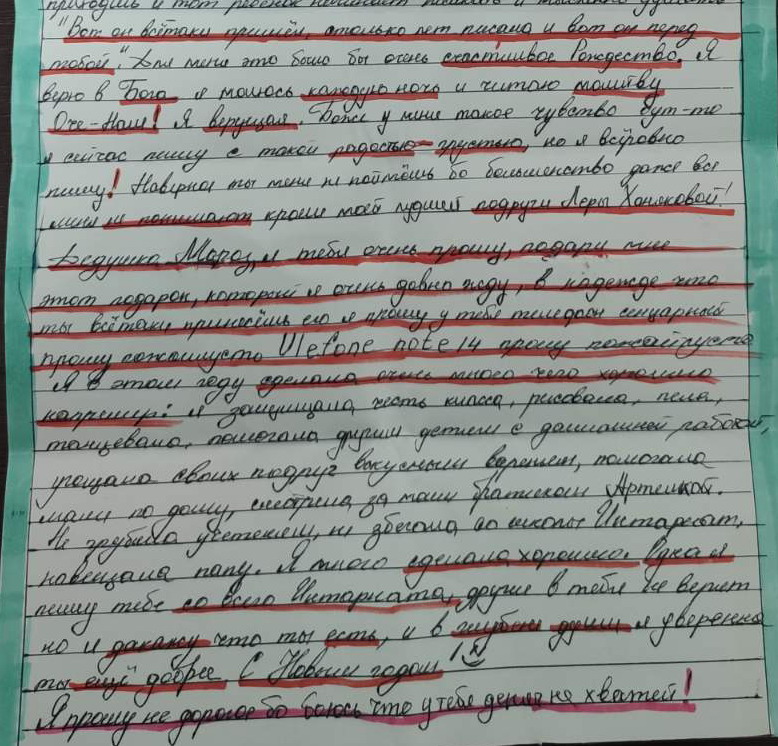 приходишь и тот ребёнок начинает
"Вот он всётаки пришёл, столько лет писала и вот он перед
тобой". Для меня это было бы очень счастливое Рождество. Я
верю в Бога я молюсь каждую ночь и читаю молитву
Оче-Наш! Я верущая. Боже у меня такое чувство бут-то
я сейчас пишу с такой радостью-грустью, но я всёровно
пишу! Наверное ты меня не поймёшь бо большенство даже все
меня не понимают кроме моей лудшей подруги Леры Хомяковой!
Дедушка Мороз, я тебя очень прошу, подари мне
этот подарок, который я очень давно жду, в надежде что
ты всётаки принесёшь его я прошу у тебя теледон сенцарный
прошу пожалуста Ulefone note 14 прошу пожайлуста
Я в этом году сделала очень много чего хорошого
например: я защищала честь класса, рисовала, пела,
танцевала, помогала другим детям с домашней работой,
угощала своих подруг вкусным варенем, помогала
маме по дому, смотрела за моим братиком Артемкой.
Не грубила учетелям, не збегала со школы Интарнат,
навещала папу. Я много сделала хорошого. Одна я
пишу тебе со всего Интарната, другие в тебя не верют
но я дакажу что ты есть, и в глубене души я уверенна
ты ещё добрее С Новым годом!
Я прошу не дорогое бо боюсь что у тебя денег не хватей!